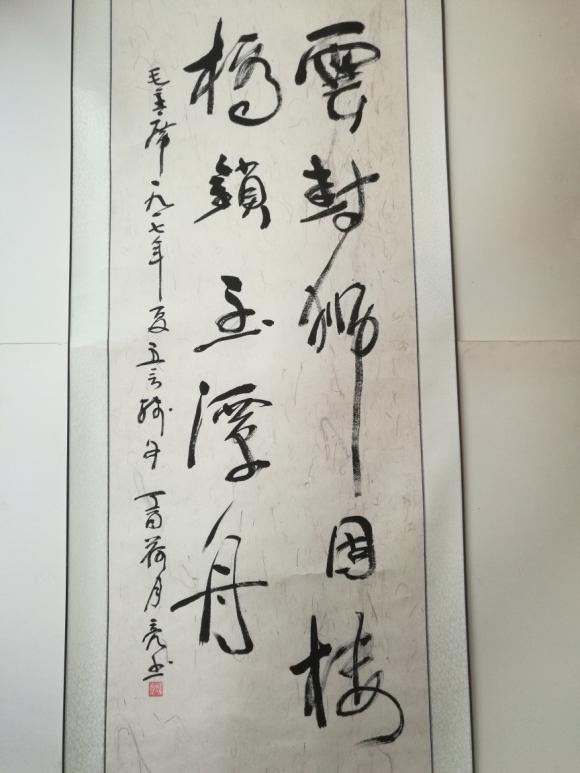 雲封獅固樓
橋鎖玉潭舟
毛主席一九一七年夏五言残句 丁酉荷月亮书